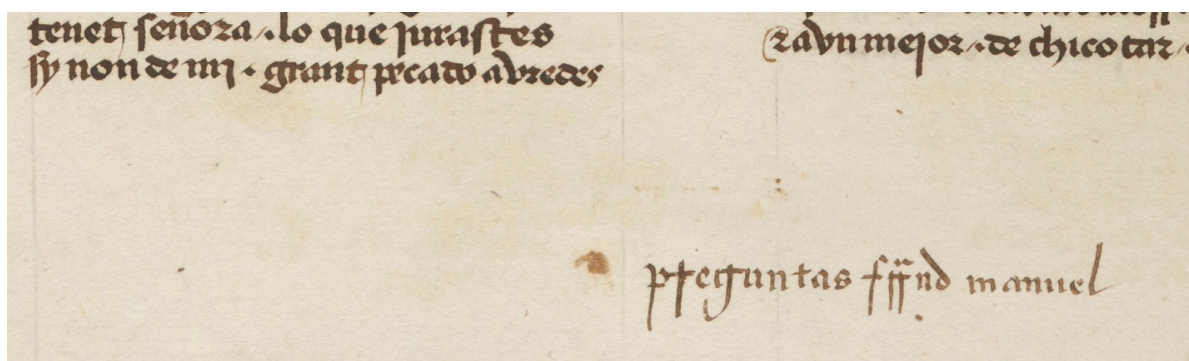 tenet señora / . lo que jurastes
sy non de mi . grant pecado avredes
& avn mejor . de chico
preguntas ffnd manuel